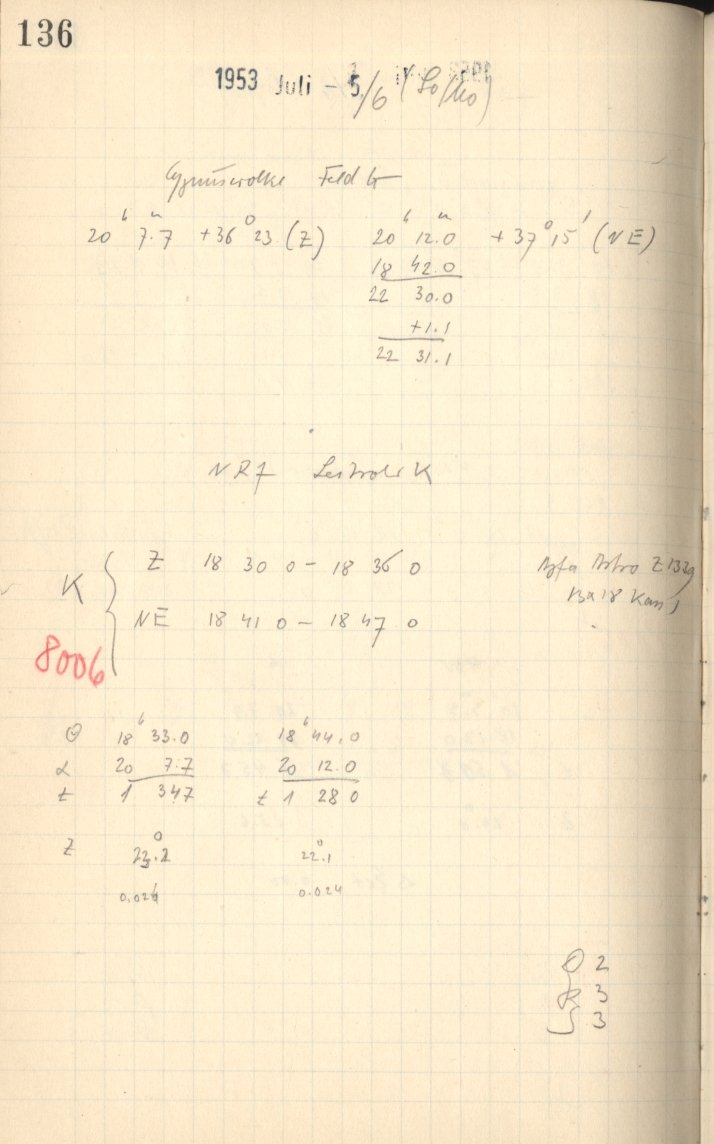 136
1953 Juli - 5/6 (So/Mo)
Cygnuswolke Feld
20h 7.m7 +36° 23 (Z) 20h 12.m0 +37° 15' (NE)
18 42.0
22 30.0
+1.1
22 31.1
NR7
Z 18 30 0 - 18 36 0
K
NE 18 41 0 - 18 47 0
Agfa Astro Z 1339
8006
Θ 18h 33.0 18h 44.0
α 20 7.7 20 12.0
t 1 34.7 t 1 28 0
Z 23.°2 22.°1
0.026 0.024
O 2
R 3
S 3